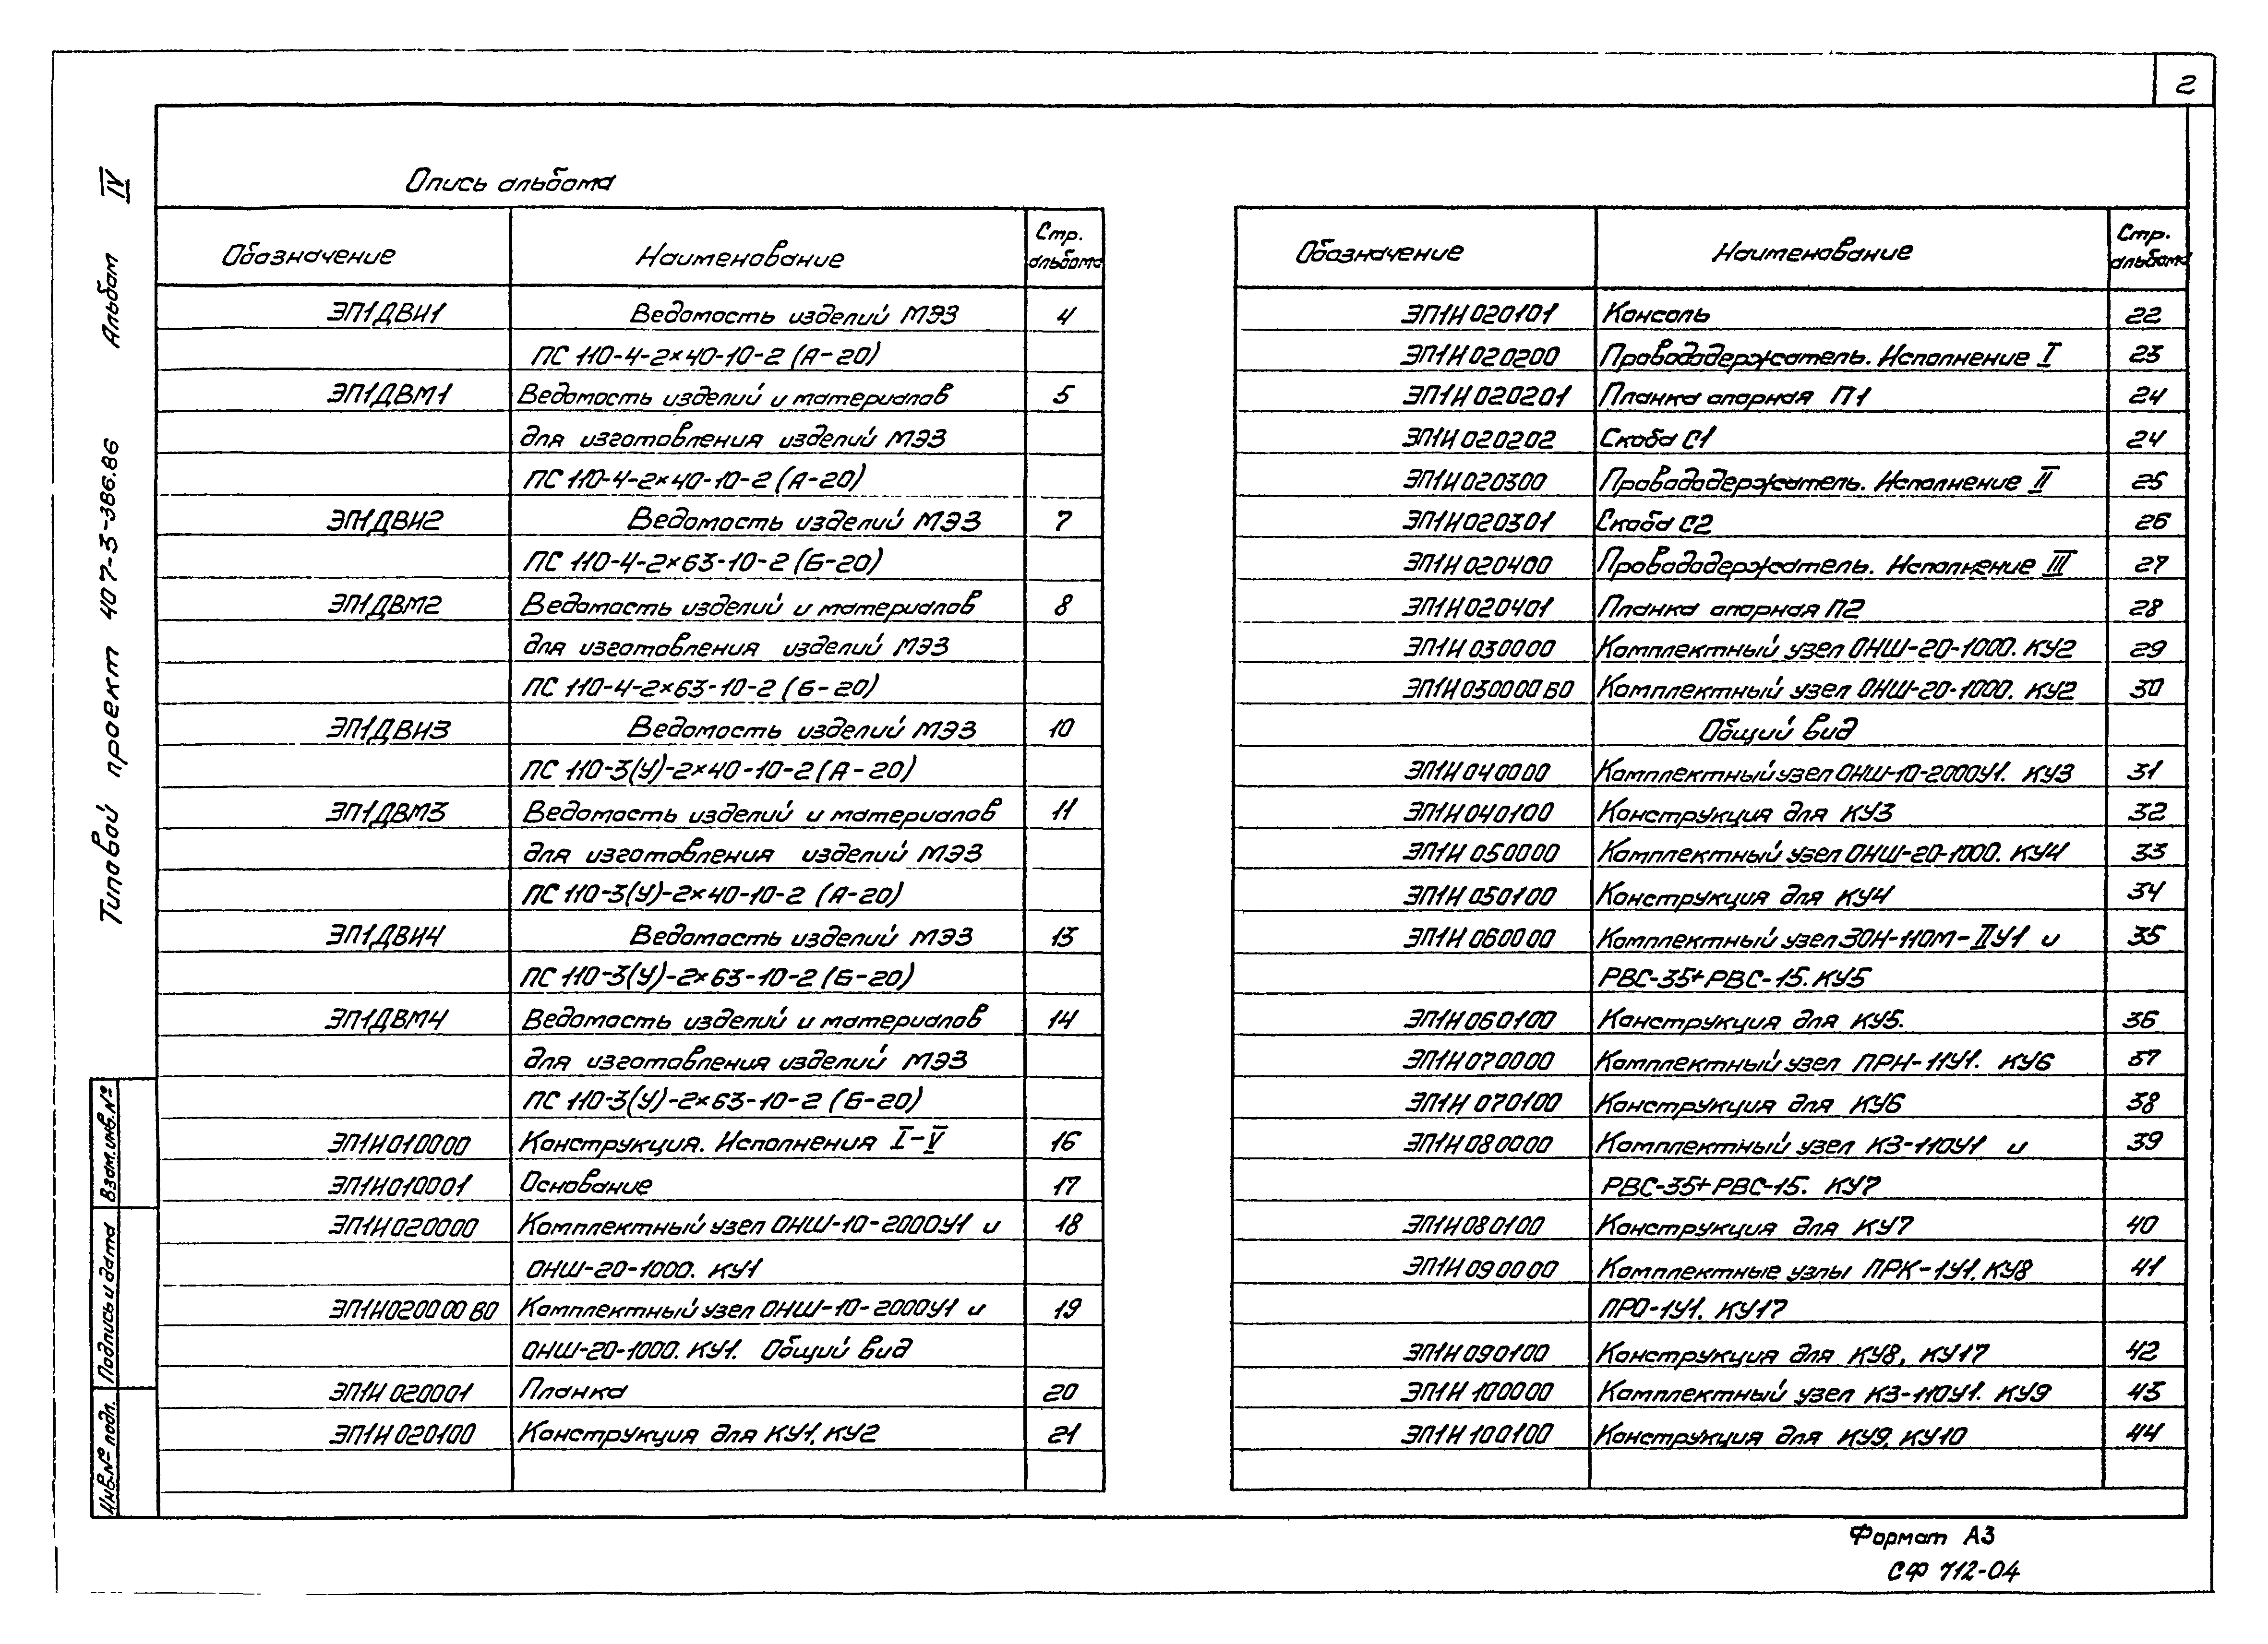 2
Опись альбома
Обозначение Наименование Стр. альбома
ЭП1ДВИ1 Ведомость изделий МЭЗ 4
ПС 110-4-2×40-10-2 (А-20)
ЭП1ДВМ1 Ведомость изделий и материалов 5
для изготовления изделий МЭЗ
ПС 110-4-2×40-10-2 (А-20)
ЭП1ДВИ2 Ведомость изделий МЭЗ 7
ПС 110-4-2×63-10-2 (Б-20)
ЭП1ДВМ2 Ведомость изделий и материалов 8
для изготовления изделий МЭЗ
ПС 110-4-2×63-10-2 (Б-20)
ЭП1ДВИ3 Ведомость изделий МЭЗ 10
ПС 110-3(У)-2×40-10-2 (А-20)
ЭП1ДВМ3 Ведомость изделий и материалов 11
для изготовления изделий МЭЗ
ПС 110-3(У)-2×40-10-2 (А-20)
ЭП1ДВИ4 Ведомость изделий МЭЗ 13
ПС 110-3(У)-2×63-10-2 (Б-20)
ЭП1ДВМ4 Ведомость изделий и материалов 14
для изготовления изделий МЭЗ
ПС 110-3(У)-2×63-10-2 (Б-20)
ЭП1И010000 Конструкция. Исполнения I-V 16
ЭП1И010001 Основание 17
ЭП1И020000 Комплектный узел ОНШ-10-2000У1 и 18
ОНШ-20-1000. КУ1
ЭП1И020000 ВО Комплектный узел ОНШ-10-2000У1 и 19
ОНШ-20-1000. КУ1. Общий вид
ЭП1И020001 Планка 20
ЭП1И020100 Конструкция для КУ1, КУ2 21
Обозначение Наименование Стр. альбома
ЭП1И020101 Консоль 22
ЭП1И020200 Провододержатель. Исполнение I 23
ЭП1И020201 Планка опорная П1 24
ЭП1И020202 Скоба С1 24
ЭП1И020300 Провододержатель. Исполнение II 25
ЭП1И020301 Скоба С2 26
ЭП1И020400 Провододержатель. Исполнение III 27
ЭП1И020401 Планка опорная П2 28
ЭП1И030000 Комплектный узел ОНШ-20-1000. КУ2 29
ЭП1И030000 ВО Комплектный узел ОНШ-20-1000. КУ2 30
Общий вид
ЭП1И040000 Комплектный узел ОНШ-10-2000У1. КУ3 31
ЭП1И040100 Конструкция для КУ3 32
ЭП1И050000 Комплектный узел ОНШ-20-1000. КУ4 33
ЭП1И050100 Конструкция для КУ4 34
ЭП1И060000 Комплектный узел ЗОН-110М-IIУ1 и 35
РВС-35+РВС-15. КУ5
ЭП1И060100 Конструкция для КУ5. 36
ЭП1И070000 Комплектный узел ПРН-11У1. КУ6 37
ЭП1И070100 Конструкция для КУ6 38
ЭП1И080000 Комплектный узел КЗ-110У1 и 39
РВС-35+РВС-15. КУ7
ЭП1И080100 Конструкция для КУ7 40
ЭП1И090000 Комплектные узлы ПРК-1У1. КУ8 41
ПРО-1У1. КУ17
ЭП1И090100 Конструкция для КУ8, КУ17 42
ЭП1И100000 Комплектный узел КЗ-110У1. КУ9 43
ЭП1И100100 Конструкция для КУ9, КУ10 44
Типовой проект 407-3-386.86 Альбом IV
Взам.инв.№
Подпись и дата
Инв.№ подл.
Формат А3
СФ 712-04